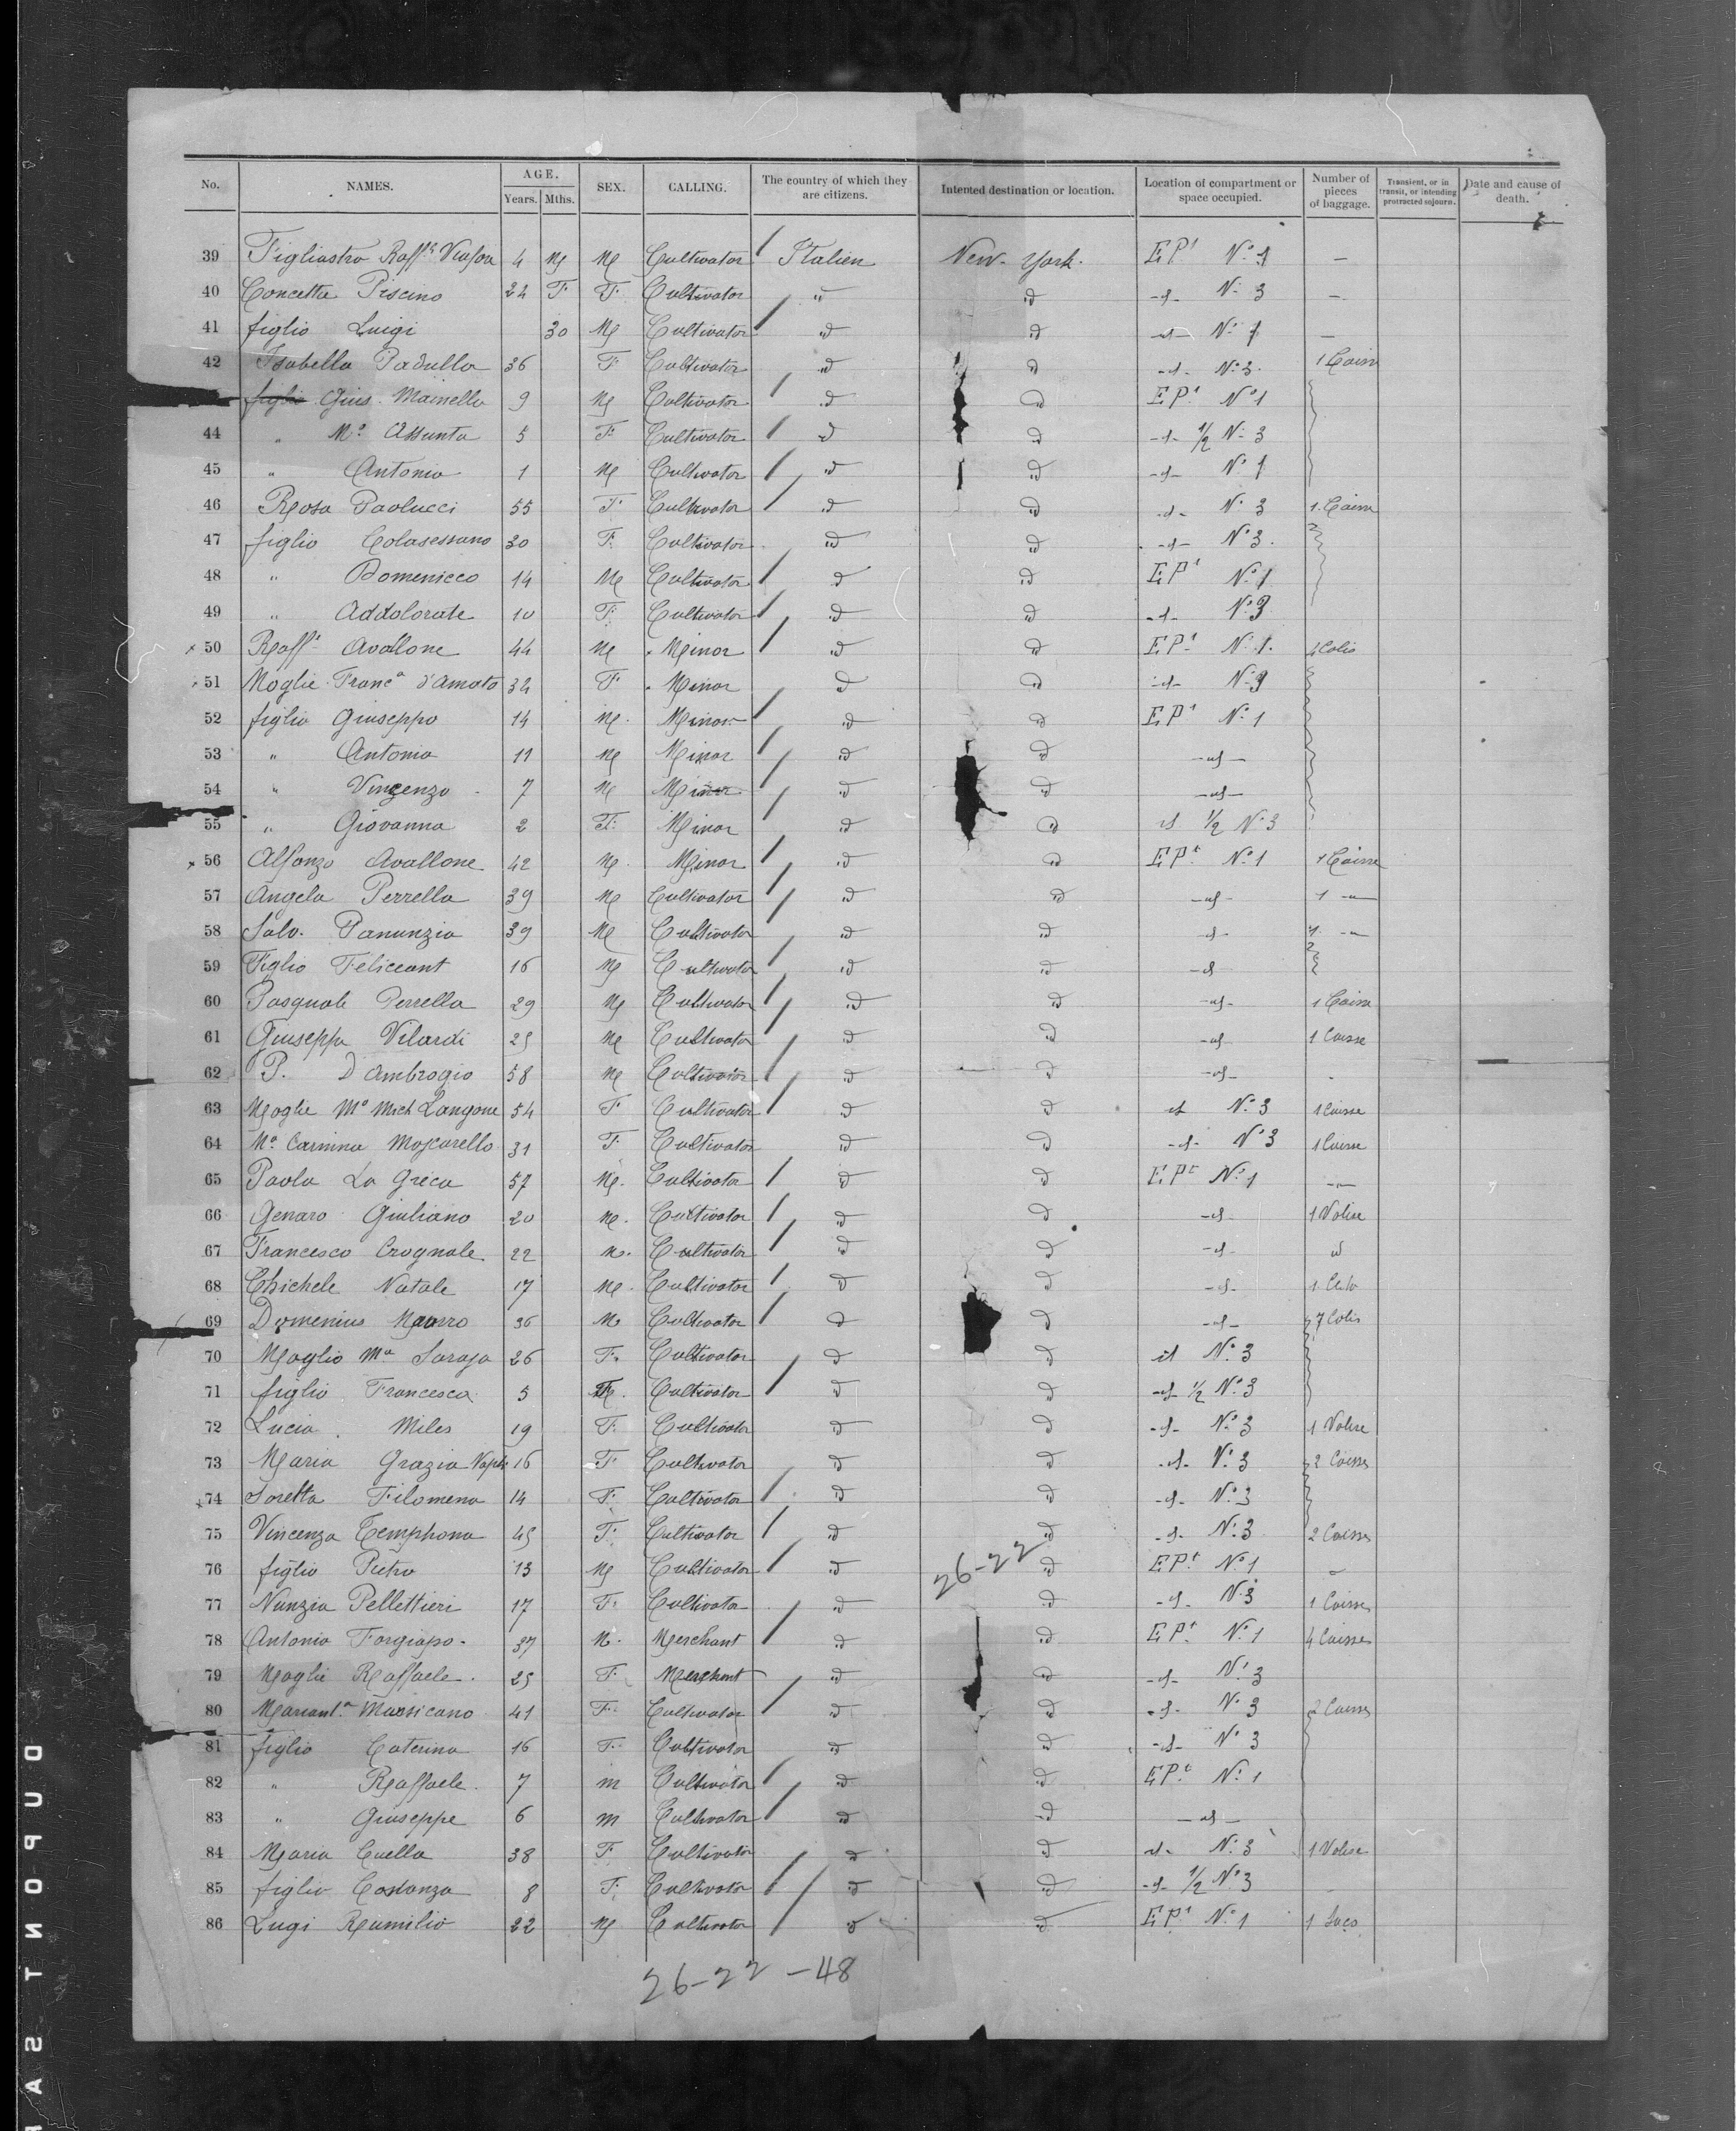 No. NAMES. AGE. Years. Mths. SEX. CALLING. The country of which they are citizens. Intented destination or location. Location of compartment or space occupied. Number of pieces of baggage. Transient, or in transit, or intending protracted sojourn. Date and cause of death.
39 Figliastro Raff. 4 M M Cultivator Italien New-York. EPt No 1 —
40 Concetta Piscino 22 F F Cultivator " id -id- No 3 —
41 figlio Luigi 30 M Cultivator id id -id- No 1 —
42 Isabella Padulla 36 F Cultivator id id -id- No 3. 1 Caisse
figli Gius. Mainella 9 M Cultivator id id EPt No 1
44 " Ma Assunta 5 F Cultivator id id -id- 1/2 No 3
45 " Antonio 1 M Cultivator id id -id- No 1
46 Rosa Paolucci 55 F Cultivator id id -id- No 3 1 Caisse
47 figlio Colasessano 30 F. Cultivator id id -id- No 3.
48 " Domenicco 14 M Cultivator id id EPt No 1
49 " Addolorate 10 F. Cultivator id id -id- No 3
50 Raffe Avallone 44 M Minor id id EPt No 1. Colis
51 Moglie Franca d'Amato 32 F Minor id id -id- No 3
52 figlio Giuseppo 14 M. Minor id id EPt No 1
53 " Antonio 11 M Minor id id -id-
54 " Vincenzo 7 M Minor id id -id-
55 " Giovanna 2 F. Minor id id id 1/2 No 3
56 Alfonzo Avallone 42 M. Minor id id EPt No 1 1 Caisse
57 Angelo Perrella 39 M Cultivator id id -id- 1 -"-
58 Salv. Panunzio 39 M Cultivator id id -id- 1 -"-
59 Figlio Feliceant 16 M Cultivator id id -id
60 Pasquale Perrella 29 M Cultivator id id -id- 1 Caisse
61 Giuseppe Vilardi 25 M Cultivator id id -id- 1 Caisse
62 P. D'Ambrogio 58 M Cultivator id id -id-
63 Moglie Ma Mich Langone 54 F Cultivator id id id No 3 1 Caisse
64 Ma Carmina Moscarello 31 F. Cultivator id id -id- No 3 1 Caisse
65 Paolo La Greca 57 M. Cultivator id id EPt No 1 -"-
66 Genaro Giuliano 20 M. Cultivator id id -id- 1 Valise
67 Francesco Crognale 22 M. Cultivator id id -id- id
68 Chichele Natale 17 M. Cultivator id id -id- 1
69 Domenius Mauro 36 M Cultivator id id -id- 7 Colis
70 Moglio Ma Saraja 26 F. Cultivator id id id No 3
71 figlio Francesca 5 F. Cultivator id id -id- 1/2 No 3
72 Lucia Miles 19 F. Cultivator id id -id- No 3 1 Valise
73 Maria Grazia 16 F Cultivator id id -id- No 3 2 Caisses
74 Loretta Filomena 14 F. Cultivator id id -id- No 3
75 Vincenza Temphona 45 F. Cultivator id id -id- No 3 2 Caisses
76 figlio Pietro 13 M Cultivator id id EPt No 1 "
26-22
77 Nunzia Pellettieri 17 F. Cultivator id id -id- No 3 1 Caisses
78 Antonio Forgiapo. 37 M. Merchant id id EPt No 1 4 Caisses
79 Moglie Raffaele. 25 F. Merchant id id -id- No 3
80 Mariant.a Marsicano 41 F. Cultivator id id -id- No 3 2 Caisses
81 figlio Caterina 16 F. Cultivator id id -id- No 3
82 " Raffaele. 7 m Cultivator id id EPt No 1
83 " Giuseppe 6 m Cultivator id id -id-
84 Maria Cuella 38 F. Cultivator id id id- No 3 1 Valise
85 figlio Costanza 8 F. Cultivator id id -id- 1/2 No 3
86 Lugi Rumilio 22 M Cultivator id id EPt No 1 1 Sacs
26-22 -48
DUPONT SA